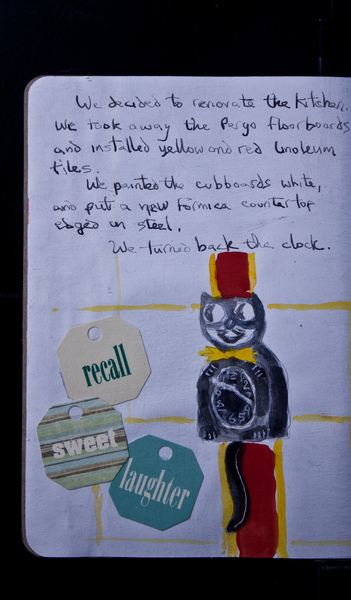 We decided to renovate the kitchen.
We took away the Pergo floorboards
and installed yellow and red linoleum
tiles.
We painted the cubboards white,
and put a new formica countertop
edged in steel.
We turned back the clock.
recall
sweet
laughter